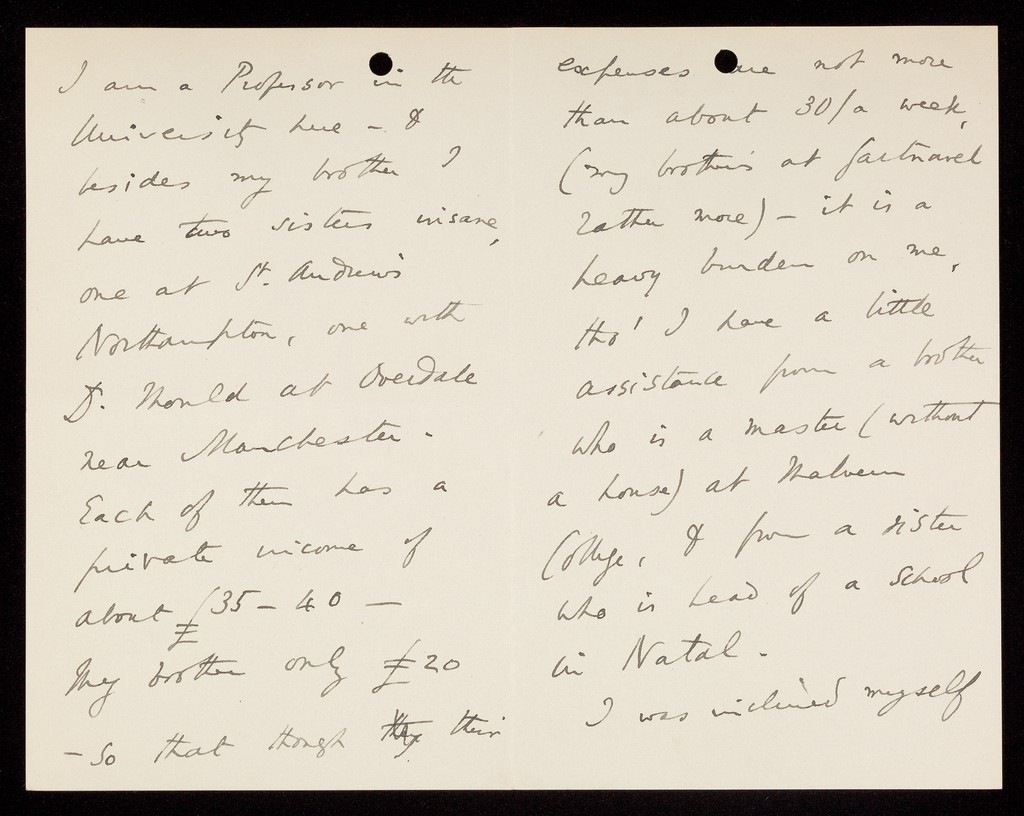 I am a Professor in the
University here - &
besides my brother I
have two sisters insane,
one at St. Andrew's
Northampton, one with
Dr. Mould at Overdale
near Manchester.
Each of them has a
private income of
about £35 - 40 -
My brother only £20
- so that though they their
expenses are not more
than about 30/ a week,
(my brother's at Gartnavel
rather more) - it is a
heavy burden on me,
tho' I have a little
assistance from a brother
who is a master (without
a house) at Malvern
College, & from a sister
who is head of a school
in Natal.
I was inclined myself